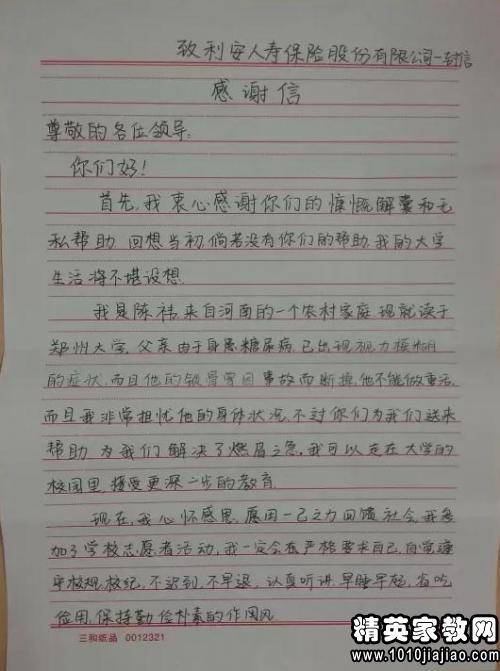 致利安人寿保险股份有限公司一封信
感谢信
尊敬的各位领导：
你们好！
首先，我衷心感谢你们的慷慨解囊和无
私帮助 回想当初，倘若没有你们的帮助，我的大学
生活将不堪设想.
我是陈祎 来自河南的一个农村家庭 现就读于
郑州大学，父亲由于身患糖尿病，已出现视力模糊
的症状，而且他的锁骨曾因事故而断掉，他不能做重活，
而且我非常担忧他的身体状况，不过你们为我们送来
帮助 为我们解决了燃眉之急，我可以走在大学的
校园里，接受更深一步的教育.
现在，我心怀感恩，愿用一己之力回馈社会，我参
加了学校志愿者活动，我一定会在严格要求自己，自觉遵
守校规校纪，不迟到，不早退，认真听讲，早睡早起，省吃
俭用，保持勤俭朴素的作风
三和纸品 0012321
精英家教网
www.1010jiajiao.com